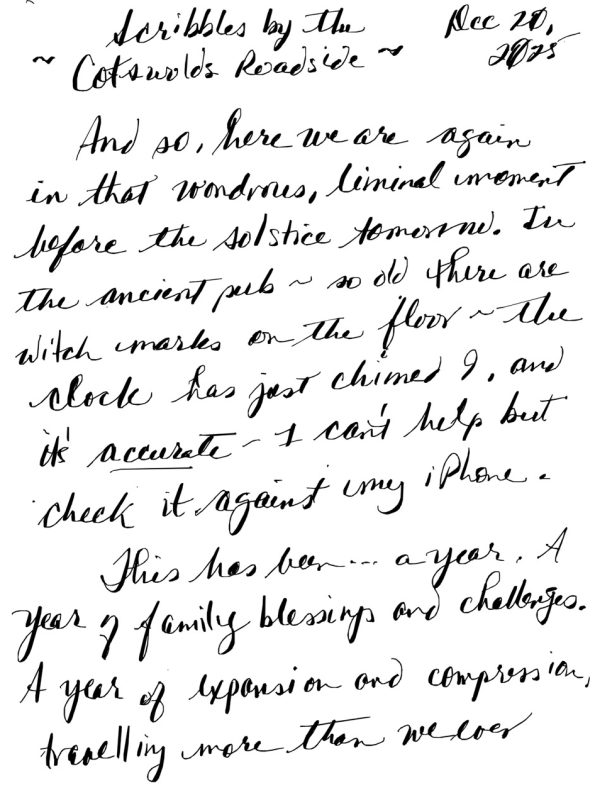 Scribbles by the
~ Cotswolds Roadside ~
Dec 20,
2025
And so, here we are again
in that wondrous, liminal moment
before the solstice tomorrow. In
the ancient pub ~ so old there are
witch marks on the floor ~ the
clock has just chimed 9, and
it's accurate – I can't help but
check it against my iPhone.
This has been... a year. A
year of family blessings and challenges.
A year of expansion and compression,
travelling more than we ever